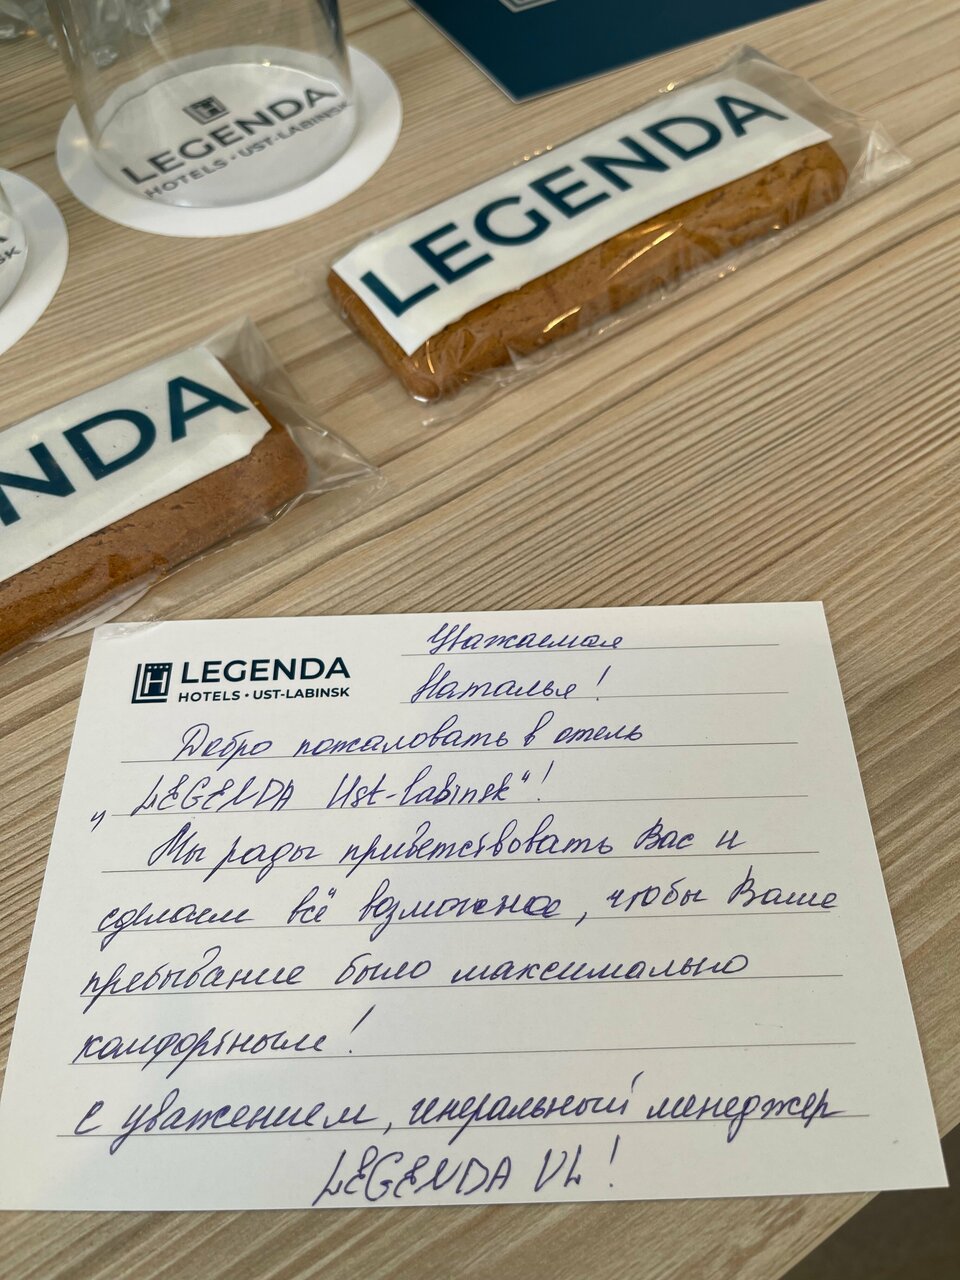 LEGENDA
HOTELS • UST-LABINSK
SK
LEGENDA
NDA
LEGENDA
HOTELS • UST-LABINSK
Уважаемая
Наталья!
Добро пожаловать в отель
„LEGENDA Ust-Labinsk“!
Мы рады приветствовать Вас и
сделаем всё возможное, чтобы Ваше
пребывание было максимально
комфортным!
С уважением, генеральный менеджер
LEGENDA UL!